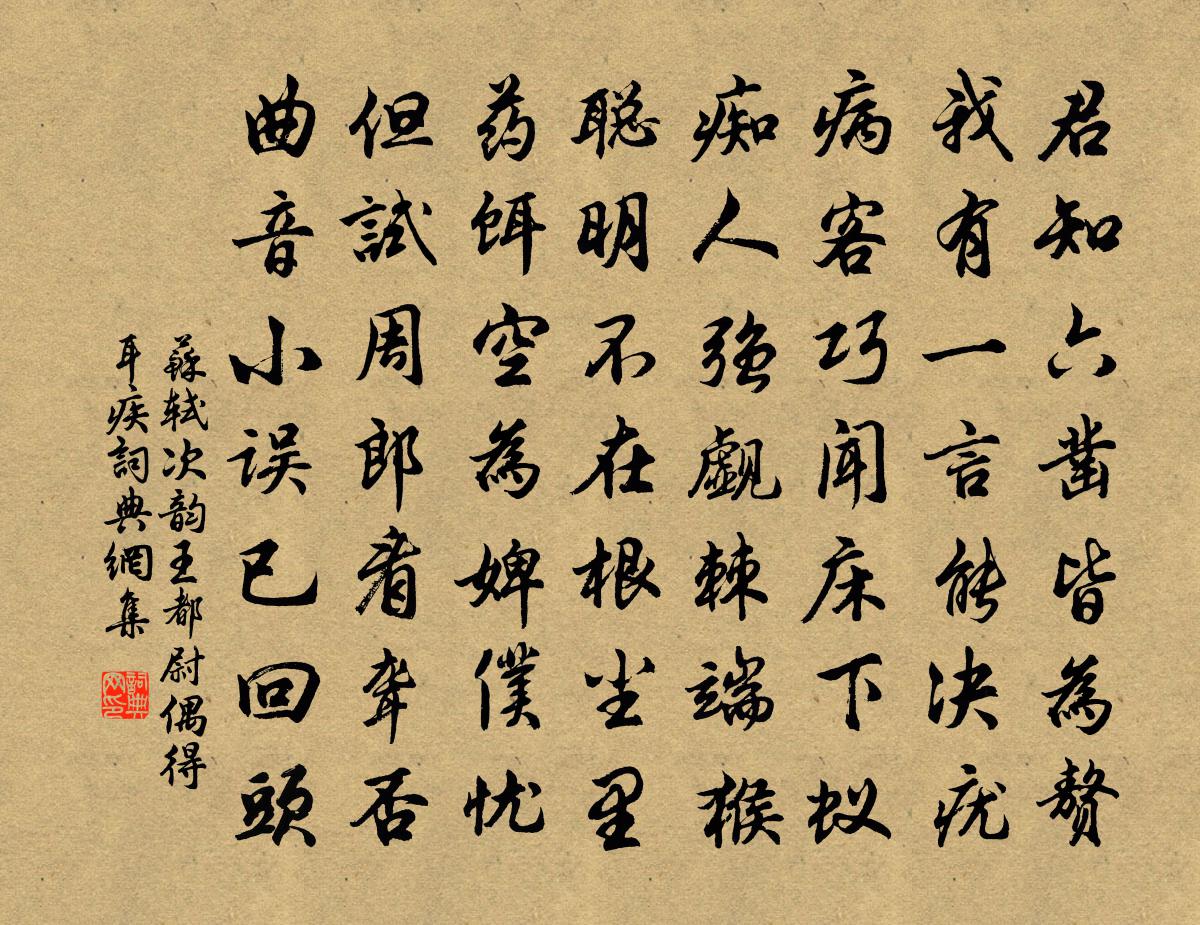 君知六凿皆為赘
我有一言能决疣
病客巧闻床下蚁
痴人强觑棘端猴
聪明不在根尘里
药饵空為婢僕忧
但試周郎看聋否
曲音小误已回頭
蘇轼次韵王都尉偶得
耳疾詞典網集
詞典网印